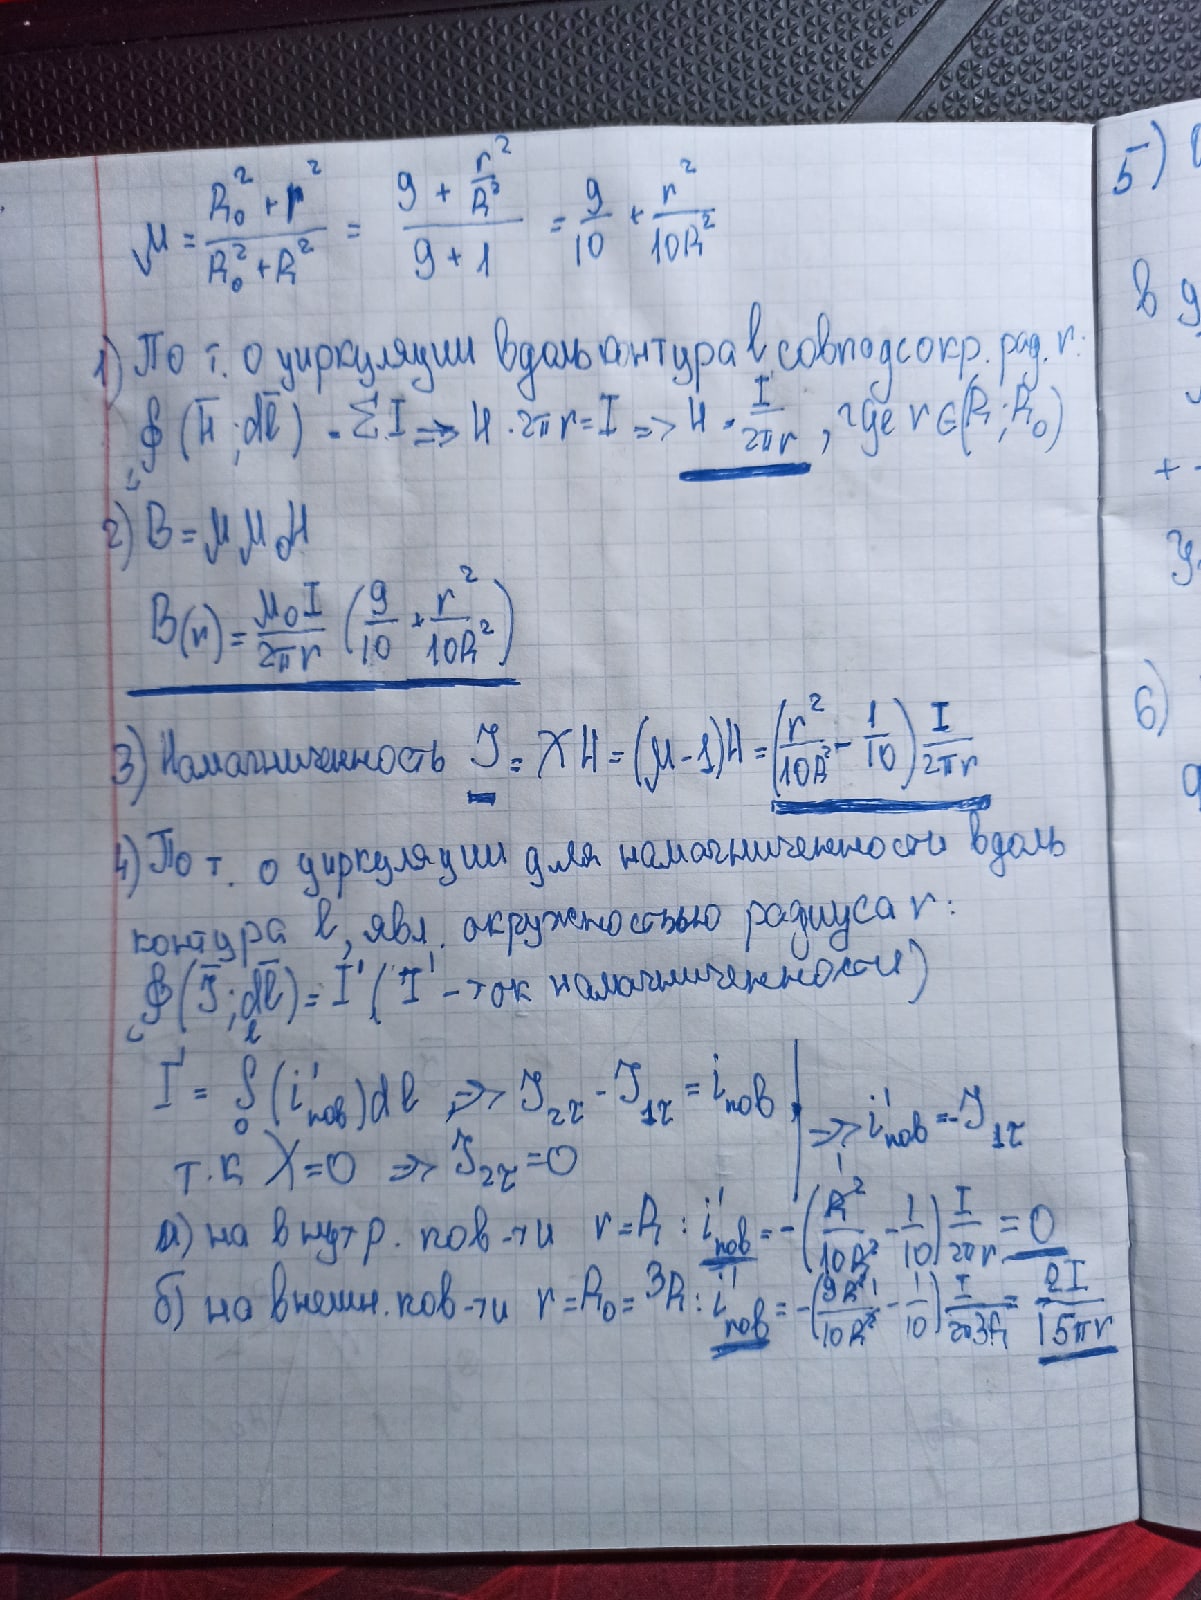 μ = (R₀² + r²)/(R₀² + R²) = (9 + r²/R²)/(9 + 1) = 9/10 + r²/10R²
1) По т. о циркуляции вдоль контура l, совпад с окр. рад. r:
∮(H̄; dl̄) = ΣI => H · 2πr = I => H = I/2πr, где r ∈ (R; R₀)
2) B = μμ₀H
B(r) = μ₀I/2πr (9/10 + r²/10R²)
3) Намагниченность J = χH = (μ - 1)H = (r²/10R² - 1/10) I/2πr
4) По т. о циркуляции для намагниченности вдоль
контура l, явл. окружностью радиуса r:
∮(J̄; dl̄) = I' (I' - ток намагниченности)
I' = ∫₀ˡ (i'пов)dl => J₂τ - J₁τ = iпов | => i'пов = -J₁τ
т.к χ = 0 => J₂τ = 0
а) на внутр. пов-ти r = R : i'пов = -(R²/10R² - 1/10) I/2πr = 0
б) на внешн. пов-ти r = R₀ = 3R : i'пов = -(9R²/10R² - 1/10) I/2π3R = 2I/15πr
5)
в
+
6)